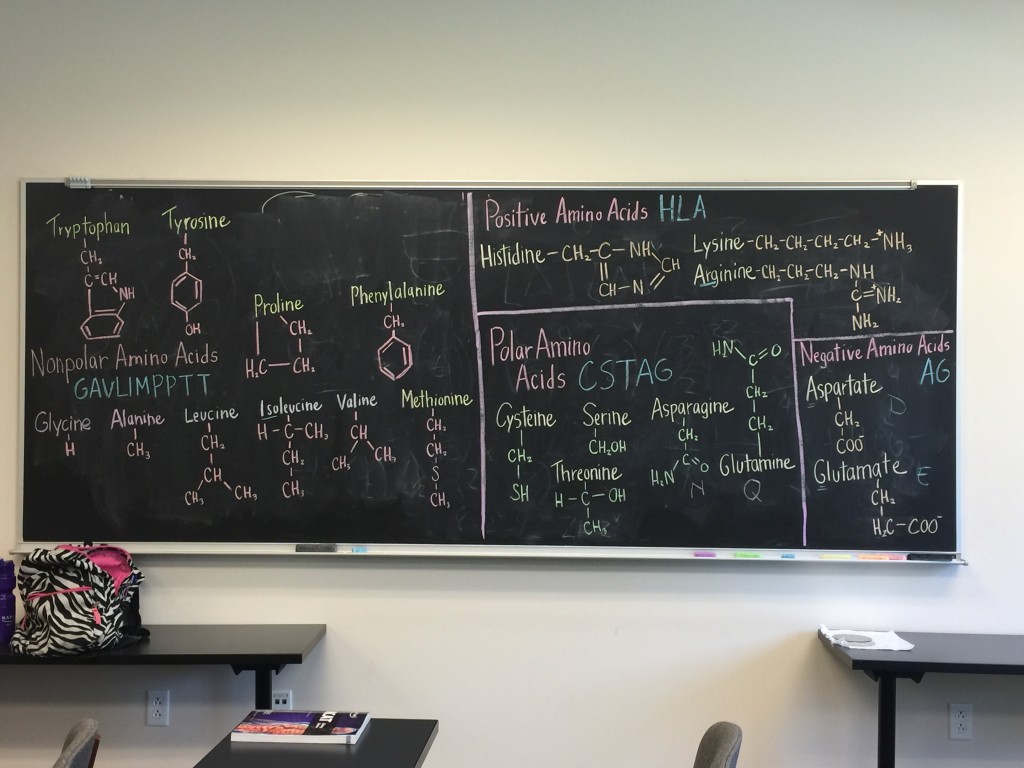 Tryptophan
CH₂
C=CH
NH
Tyrosine
CH₂
OH
Proline
CH₂
H₂C—CH₂
Phenylalanine
CH₂
Nonpolar Amino Acids
GAVLIMPPTT
Glycine
H
Alanine
CH₃
Leucine
CH₂
CH
CH₃ CH₃
Isoleucine
H-C-CH₃
CH₂
CH₃
Valine
CH
CH₃ CH₃
Methionine
CH₂
CH₂
S
CH₃
Positive Amino Acids HLA
Histidine-CH₂-C-NH
CH
CH-N
Lysine-CH₂-CH₂-CH₂-CH₂-⁺NH₃
Arginine-CH₂-CH₂-CH₂-NH
C=⁺NH₂
NH₂
Polar Amino
Acids CSTAG
Cysteine
CH₂
SH
Serine
CH₂OH
Threonine
H-C-OH
CH₃
Asparagine
CH₂
H₂N C O
N
H₂N C=O
CH₂
CH₂
Glutamine
Q
Negative Amino Acids
AG
Aspartate
D
CH₂
COO⁻
Glutamate E
CH₂
H₂C-COO⁻